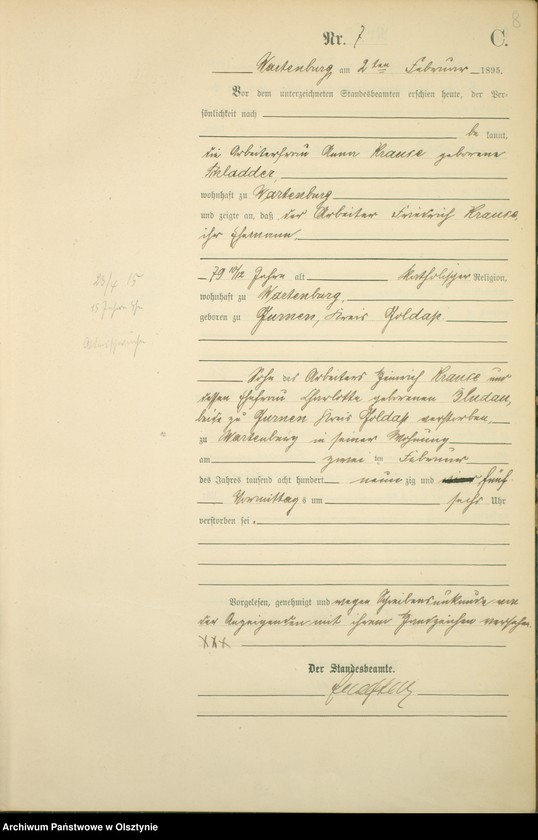 8
Nr. 7 C.
Wartenburg, am 2ten Februar 1895.
Vor dem unterzeichneten Standesbeamten erschien heute, der Per-
sönlichkeit nach
be kannt,
die Arbeiterfrau Anna Krause geborene
Skladder,
wohnhaft zu Wartenburg
und zeigte an, daß der Arbeiter Friedrich Krause,
ihr Ehemann
79 10/12 Jahre alt katholischer Religion,
wohnhaft zu Wartenburg,
geboren zu Gurnen, Kreis Goldap
Sohn des Arbeiters Heinrich Krause und
dessen Ehefrau Charlotte geborenen Bludau,
beide zu Gurnen Kreis Goldap verstorben,
zu Wartenburg in seiner Wohnung
am zwei ten Februar
des Jahres tausend acht hundert neun zig und fünf
Vormittag s um sechs Uhr
verstorben sei.
Vorgelesen, genehmigt und wegen Schreibensunkunde von
der Anzeigenden mit ihrem Handzeichen versehen.
XXX
Der Standesbeamte.
23/4 15
15 Jahre
Archiwum Państwowe w Olsztynie